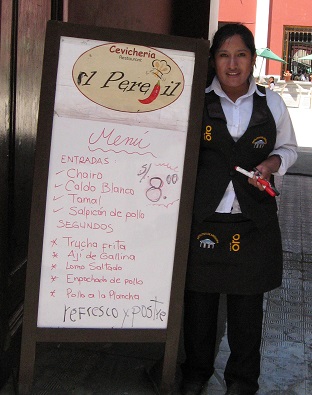 Cevicheria
Restaurant
El Perejil
Menú
ENTRADAS
S/. 8.00
✓ Chairo
✓ Caldo Blanco
✓ Tamal
✓ Salpicón de pollo
SEGUNDOS
* Trucha frita
* Aji de Gallina
* Lomo Saltado
* Empachado de pollo
* Pollo a la Plancha
refresco y postre
ORO
ORO